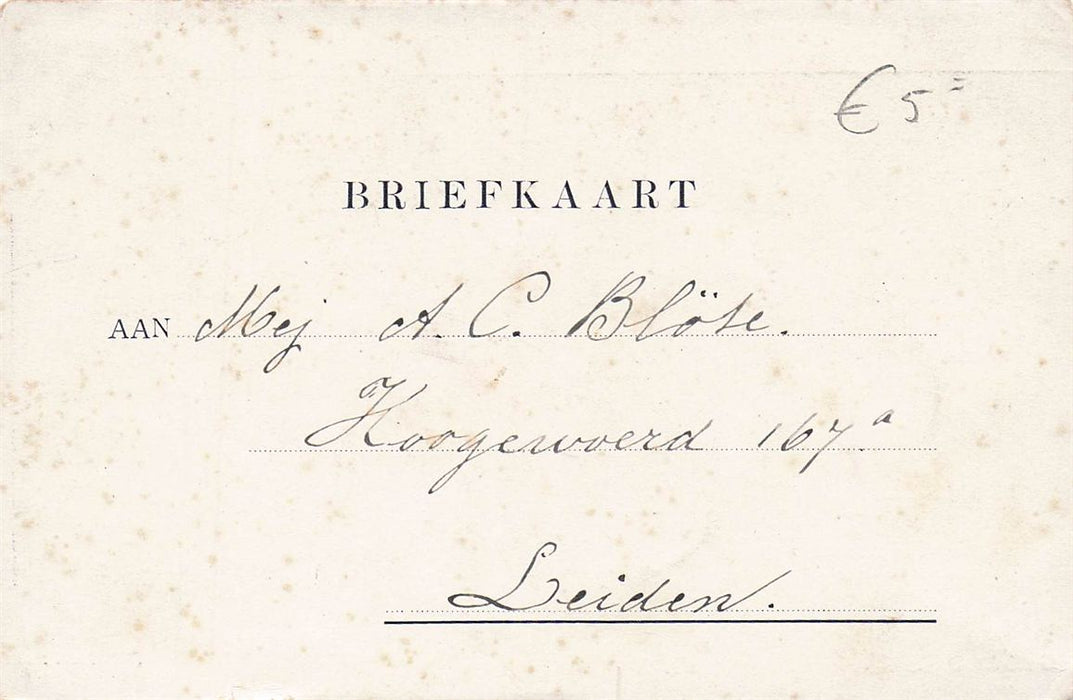 € 5=
BRIEFKAART
AAN Mej A. C. Blöte.
Hoogewoerd 167a
Leiden.